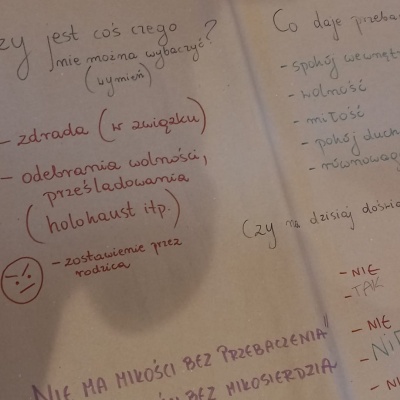 zy jest coś czego
nie można wybaczyć?
(wymień)
- zdrada (w związku)
- odebrania wolności,
prześladowania
(holohaust itp.)
- zostawienie przez
rodzica
Co daje przeba
- spokój wewnęt
- wolność
- miłość
- pokój duch
- równowag
Czy dzisiaj doświ
- NIE
- TAK
- NIE
- NIE
- NI
NIE MA MIŁOŚCI BEZ PRZEBACZENIA"
BEZ MIŁOSIERDZIA